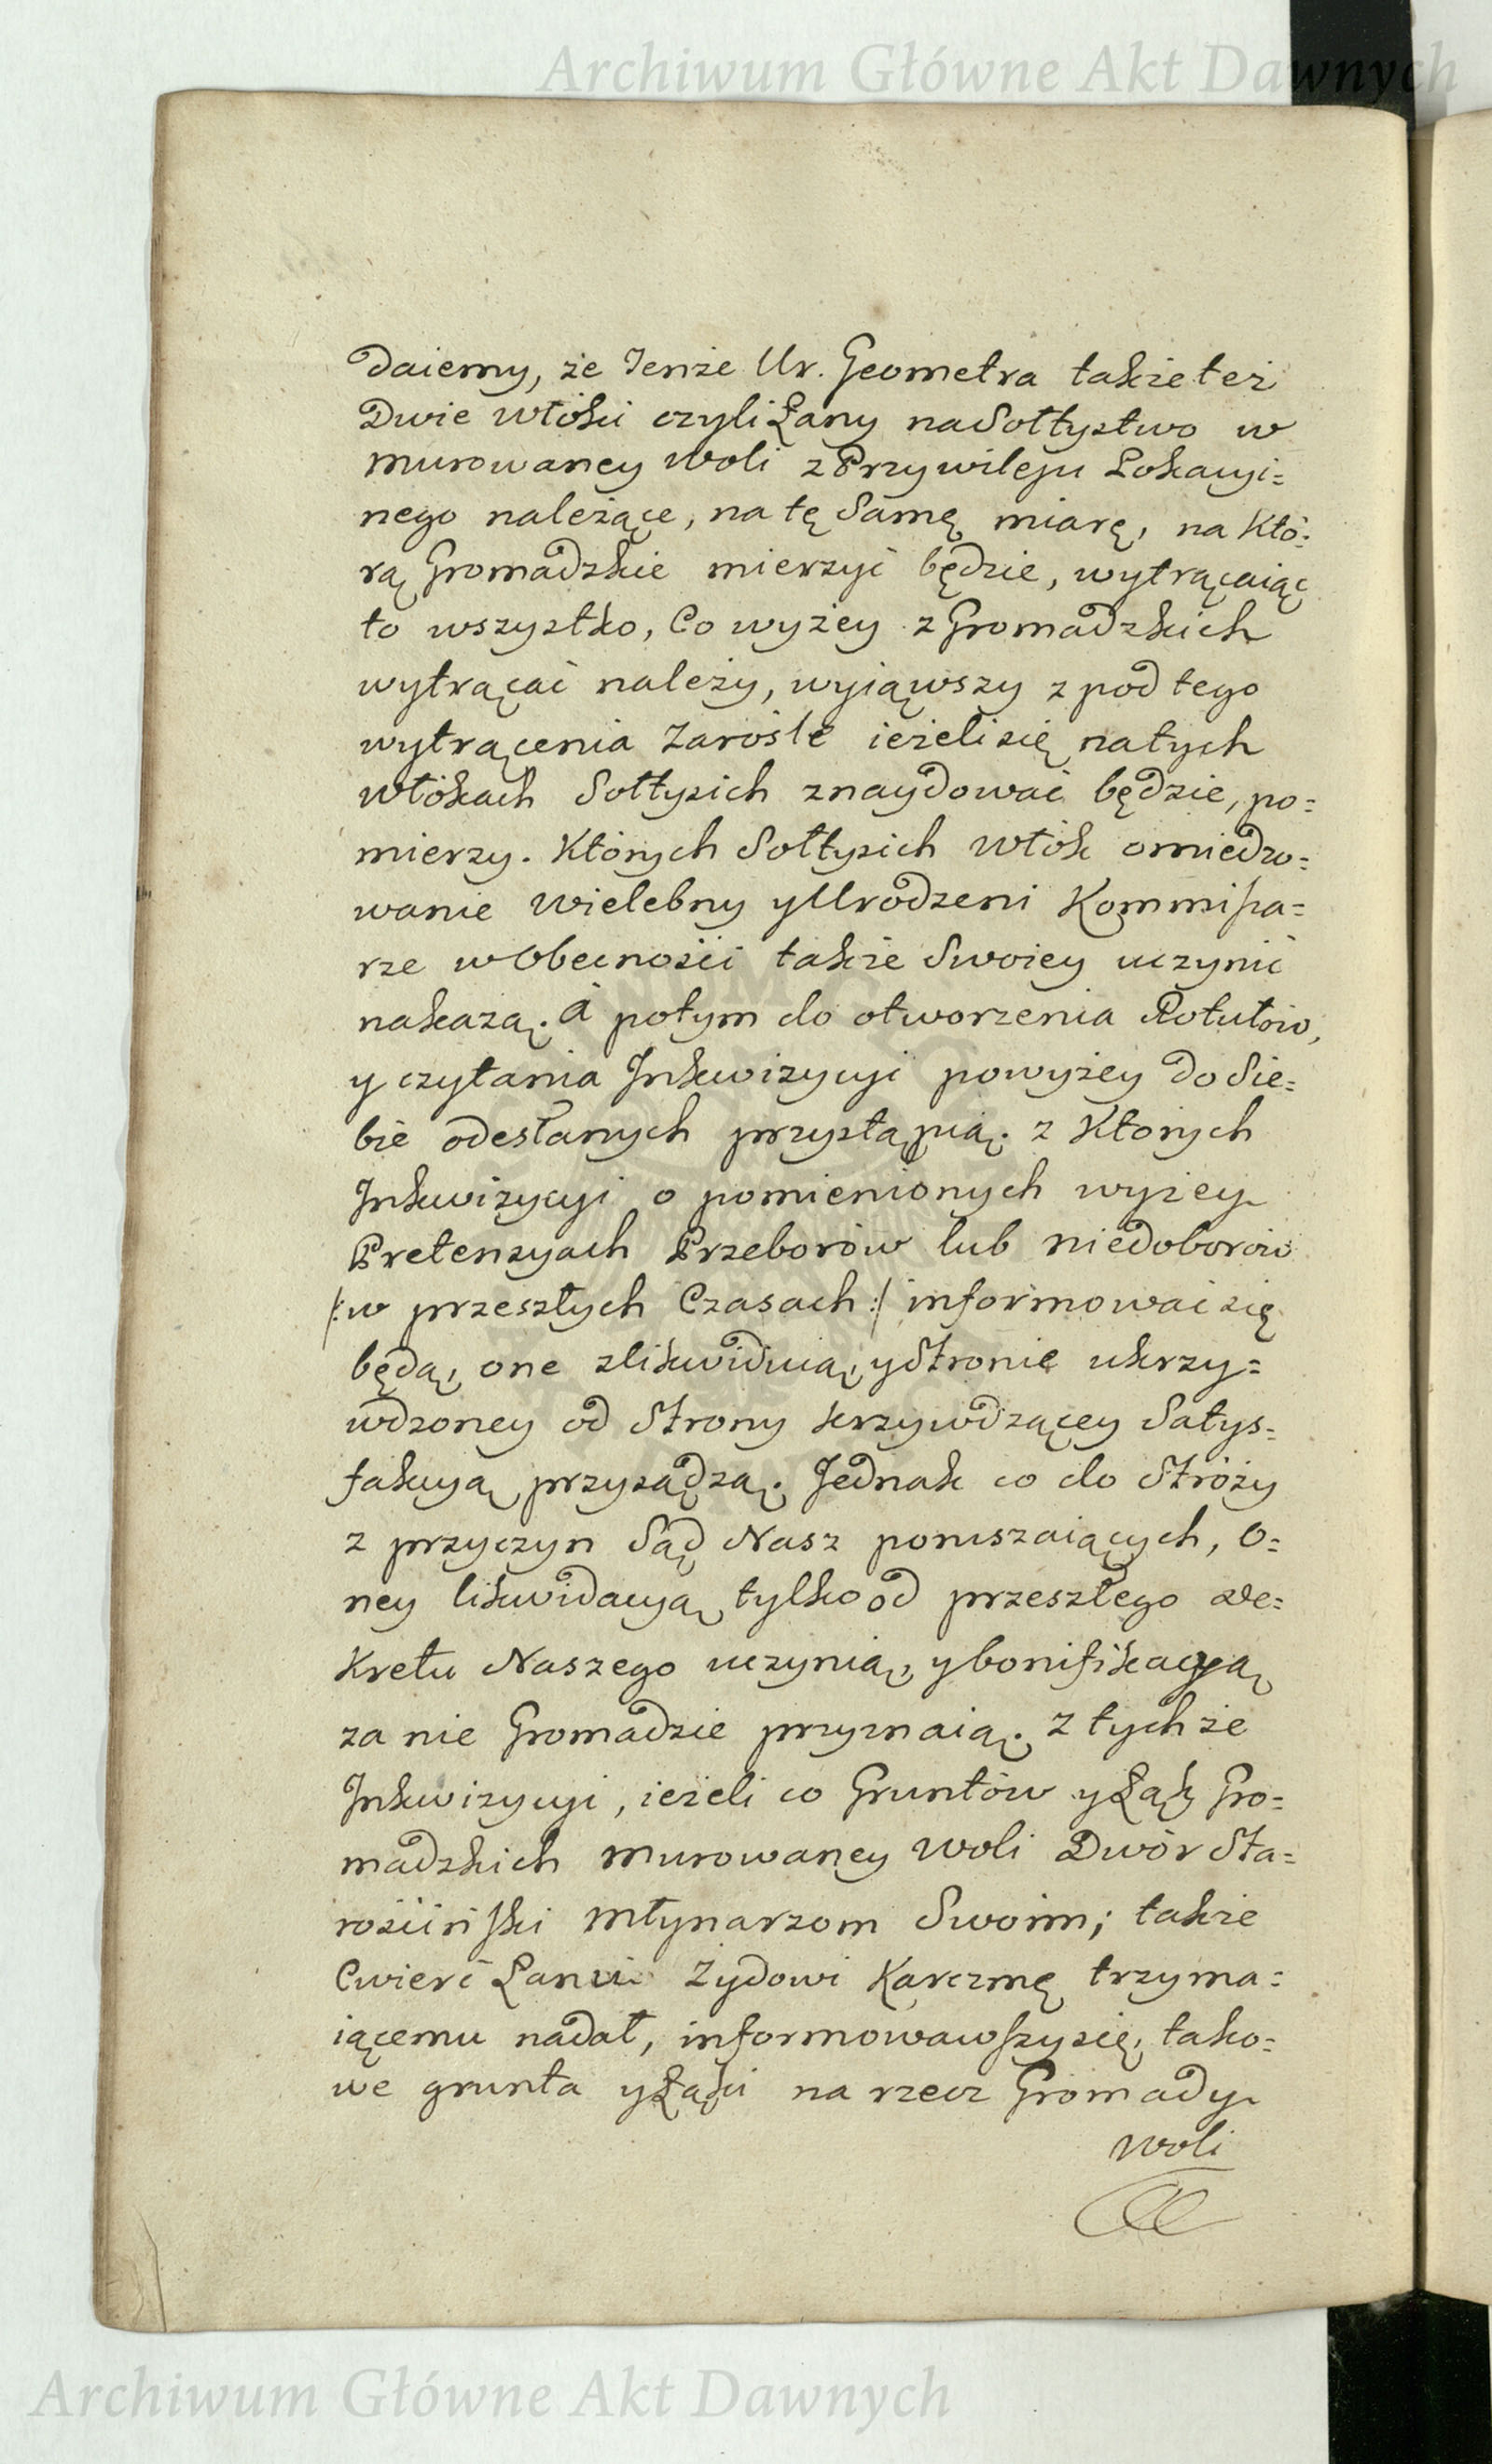 Archiwum Główne Akt Dawnych
Daiemy, że Tenże Ur. Geometra takżeteż
Dwie włóki czyli Łany na Sołtystwo w
Murowaney Woli z Przywileju Lokacyi=
nego należące, na tę Samę miarę, na Któ=
rą Gromadzkie mierzyć będzie, wytrącaiąc
to wszystko, Co wyżey z Gromadzkich
wytrącać należy, wyiąwszy z pod tego
wytrącenia Zarośle ieżeli się na tych
Włókach Sołtysich znaydować będzie, po=
mierzy. Których Sołtysich Włók omiedzo=
wanie Wielebny y Urodzeni Kommissa=
rze w Obecności także Swoiey uczynić
nakażą. A potym do otworzenia Rotułów,
y czytania Inkwizycyi powyżey do Sie=
bie odesłanych przystąpią. z Których
Inkwizycyi o pomienionych wyżey
Pretensyach Przeborów lub niedoborów
/: w przeszłych Czasach :/ informować się
będą, one zlikwiduią, y Stronie ukrzy=
wdzoney od Strony krzywdzącey Satys=
fakcyą przysądzą. Jednak co do Stróży
z przyczyn Sąd Nasz poruszaiących, O=
ney likwidacyą tylko od przeszłego De=
Kretu Naszego uczynią, y bonifikacyą
za nie Gromadzie przyznaią. Z tychże
Inkwizycyi, ieżeli co Gruntów y Łąk Gro=
madzkich Murowaney Woli Dwór Sta=
rościński Młynarzom Swoim; także
Cwierć Łanu Żydowi Karczmę trzyma=
iącemu nadał, informowawszy się, tako=
we grunta y Łąki na rzecz Gromady
Woli
Archiwum Główne Akt Dawnych